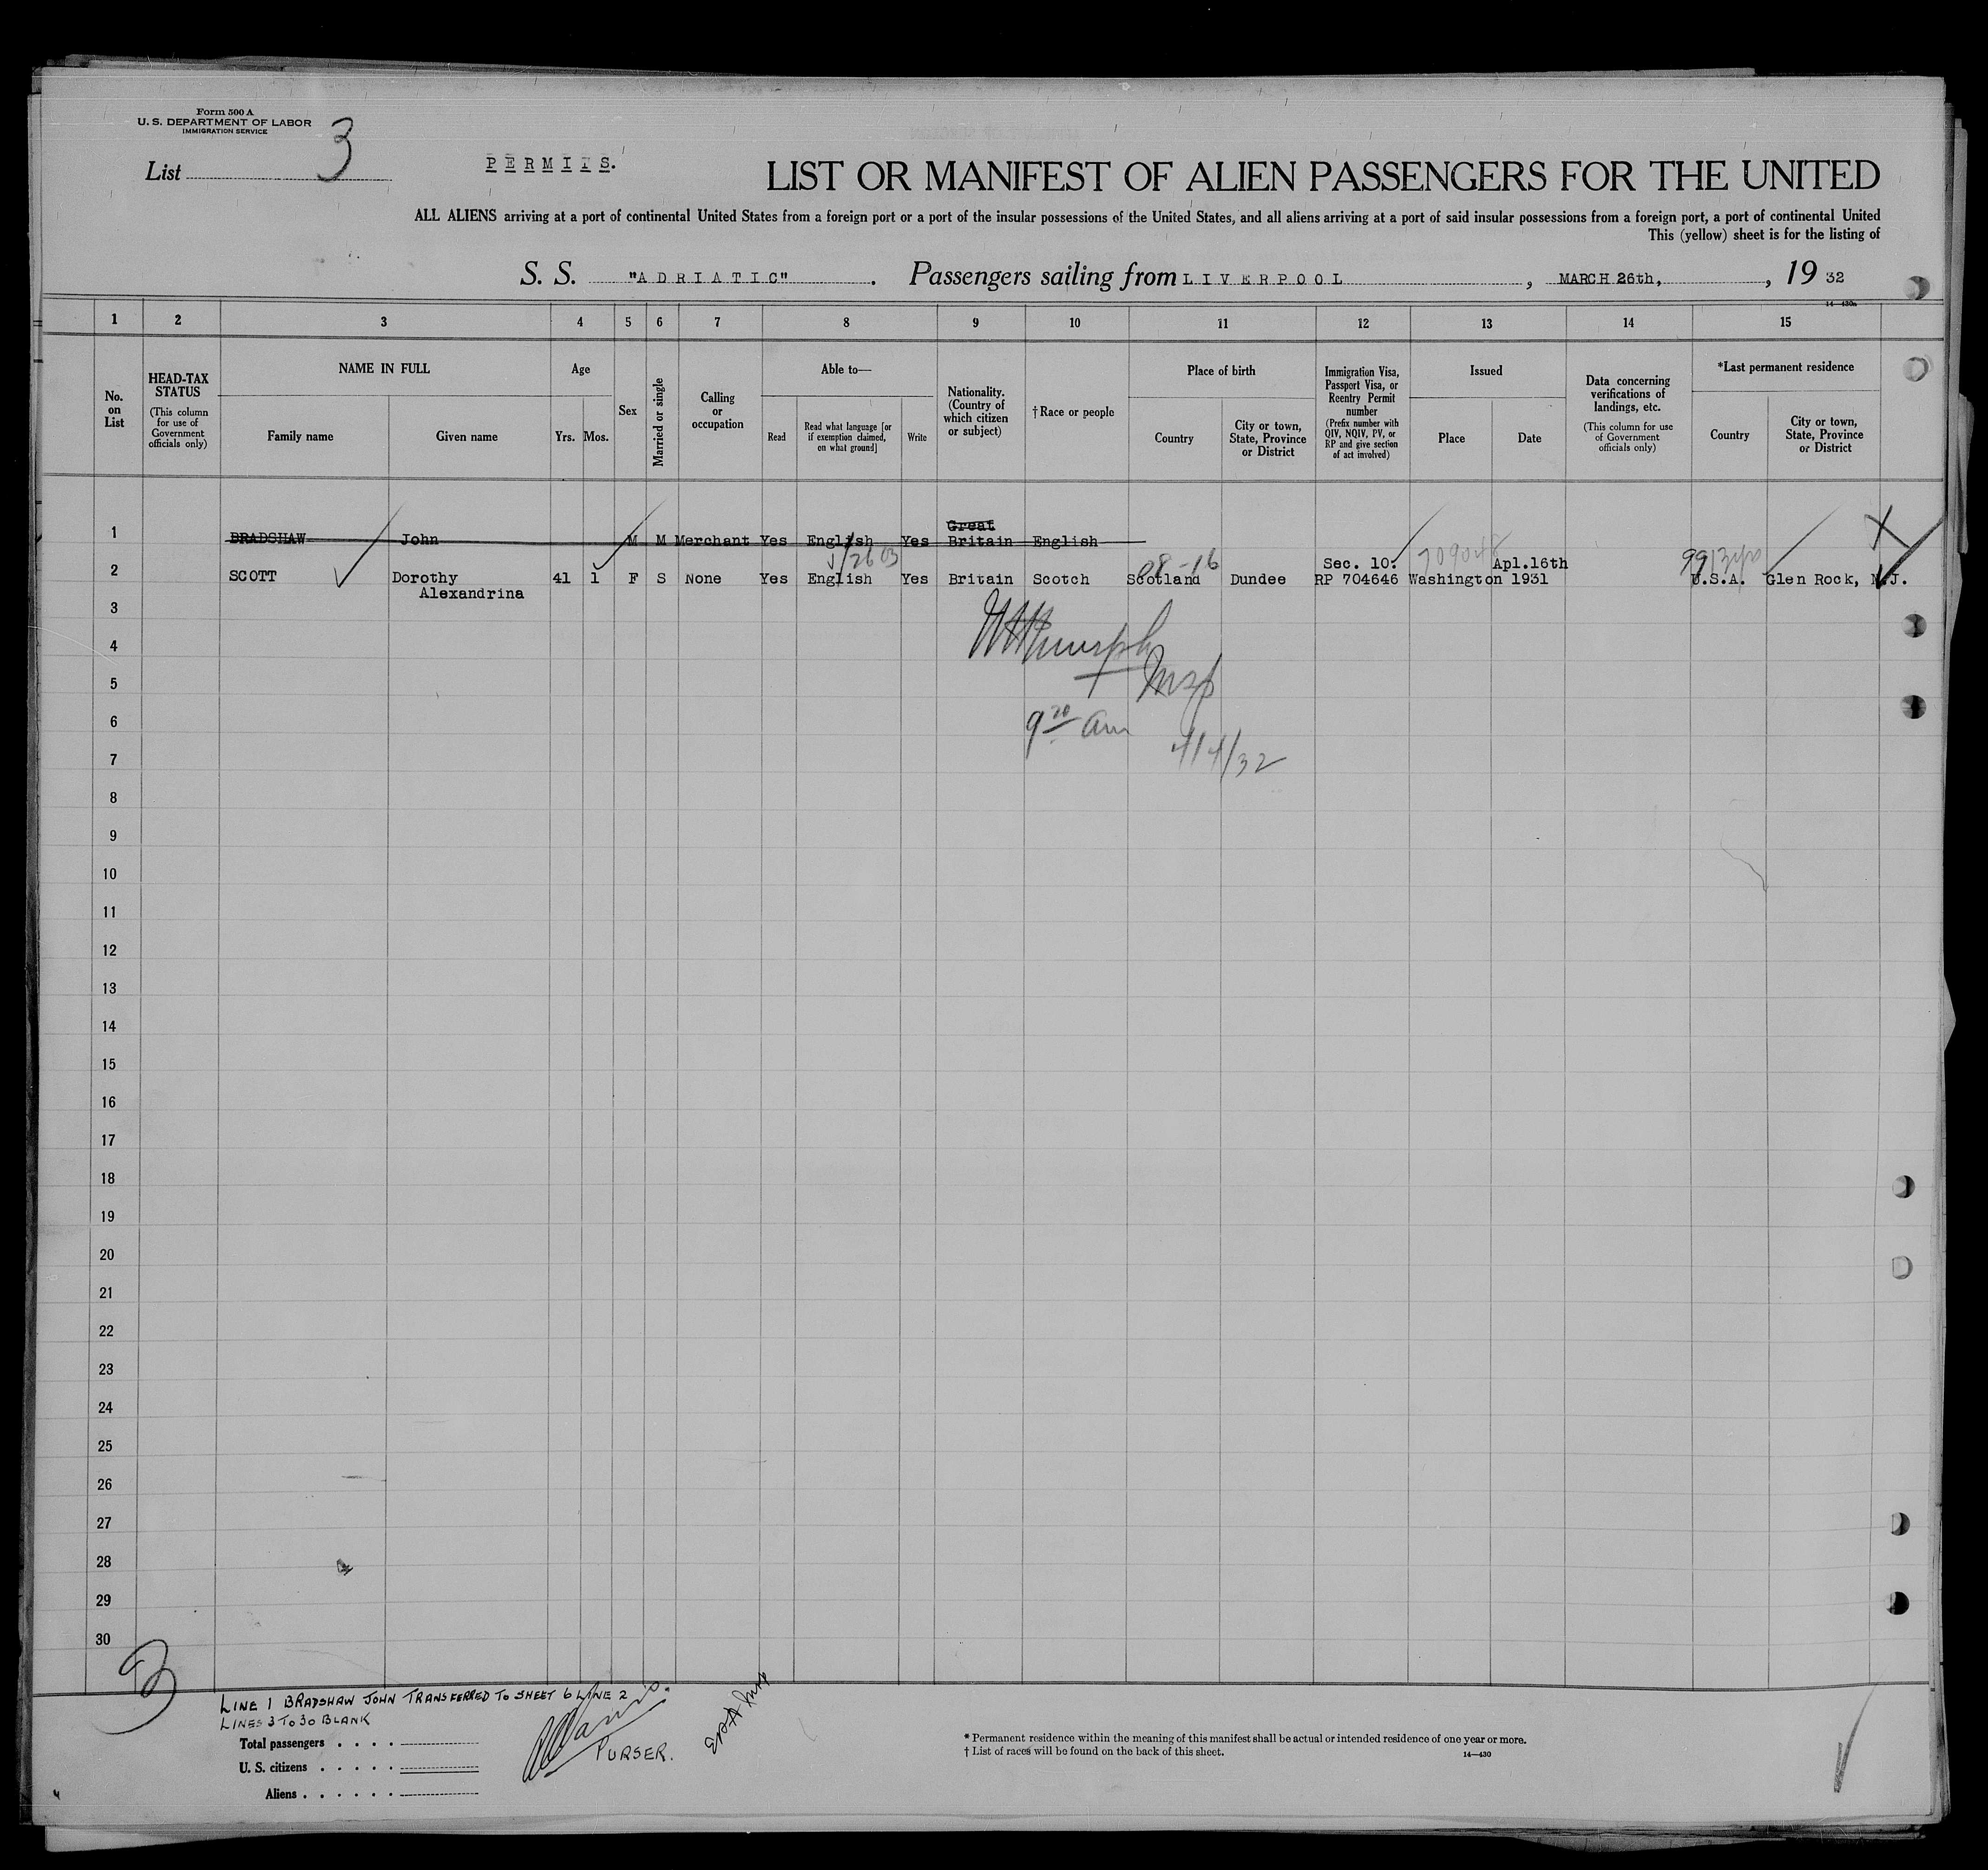 Form 500 A
U. S. DEPARTMENT OF LABOR
IMMIGRATION SERVICE
List 3
PERMITS.
LIST OR MANIFEST OF ALIEN PASSENGERS FOR THE UNITED
ALL ALIENS arriving at a port of continental United States from a foreign port or a port of the insular possessions of the United States, and all aliens arriving at a port of said insular possessions from a foreign port, a port of continental United
This (yellow) sheet is for the listing of
S. S. "ADRIATIC". Passengers sailing from LIVERPOOL, MARCH 26th, , 19 32
14—430a
1 2 3 4 5 6 7 8 9 10 11 12 13 14 15
No. on List
HEAD-TAX STATUS
(This column for use of Government officials only)
NAME IN FULL
Family name
Given name
Age
Yrs.
Mos.
Sex
Married or single
Calling or occupation
Able to—
Read
Read what language [or if exemption claimed, on what ground]
Write
Nationality. (Country of which citizen or subject)
†Race or people
Place of birth
Country
City or town, State, Province or District
Immigration Visa, Passport Visa, or Reentry Permit number
(Prefix number with QIV, NQIV, PV, or RP and give section of act involved)
Issued
Place
Date
Data concerning verifications of landings, etc.
(This column for use of Government officials only)
*Last permanent residence
Country
City or town, State, Province or District
1 BRADSHAW John M M Merchant Yes English Yes Great Britain English
2 SCOTT Dorothy Alexandrina 41 1 F S None Yes English Yes Britain Scotch Scotland Dundee Sec. 10. RP 704646 Washington Apl.16th 1931 U.S.A. Glen Rock, N.J.
08-16
99
3
4
5
6
7
9 20 am
4/4/32
8
9
10
11
12
13
14
15
16
17
18
19
20
21
22
23
24
25
26
27
28
29
30
3
LINE 1 BRADSHAW JOHN TRANSFERRED TO SHEET 6 LINE 2
LINES 3 TO 30 BLANK
PURSER.
Total passengers
U. S. citizens
Aliens
* Permanent residence within the meaning of this manifest shall be actual or intended residence of one year or more.
† List of races will be found on the back of this sheet.
14—430